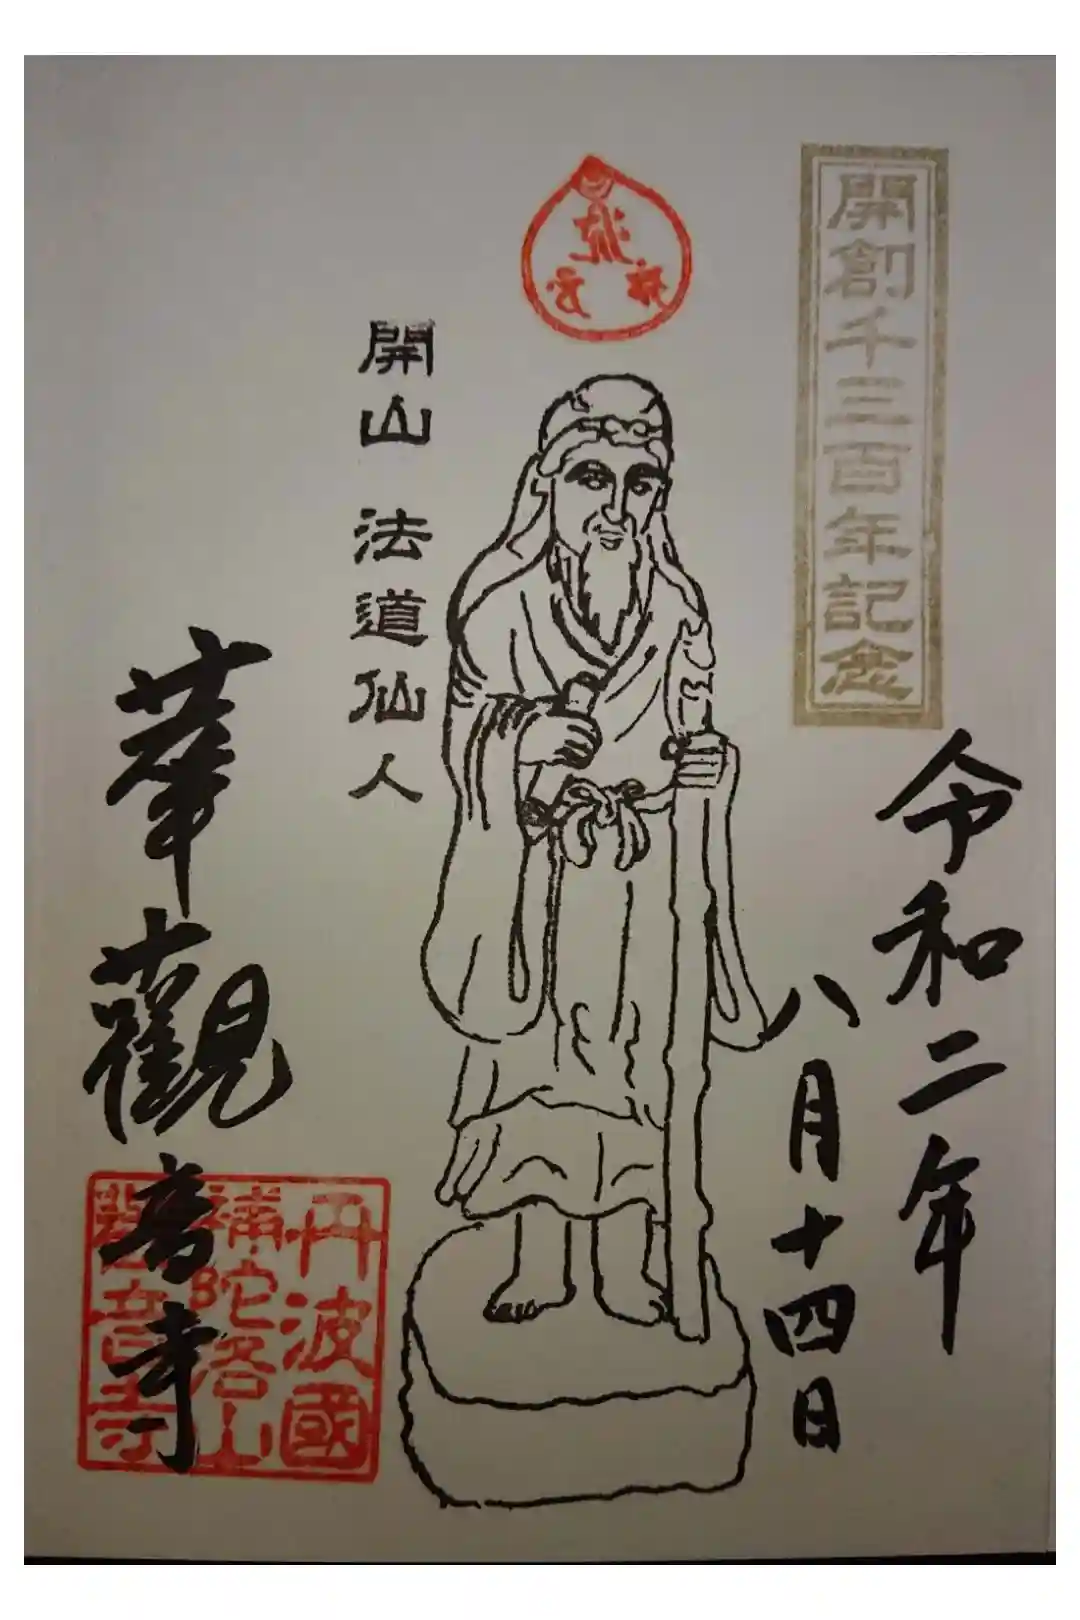 開創千三百年記念
令和二年
八月十四日
開山 法道仙人
華觀音寺
丹波國
補陀洛山
觀音寺